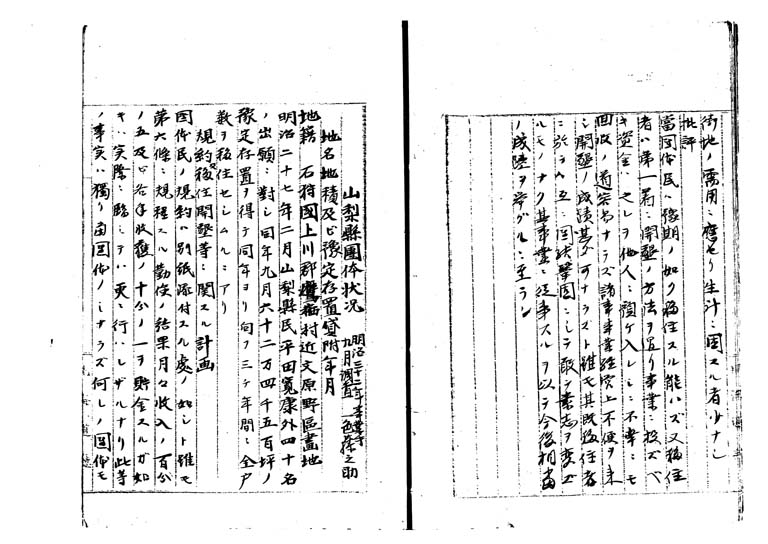 街地ノ需用ニ應セリ生汁ニ困スル者少ナシ
批評
當團体民ハ豫期ノ如ク移住スル能ハズ又移住
者ハ第一着ニ開墾ノ方法ヲ誤リ事業ニ投ズベ
キ資金ハ之レヲ他人ニ預ケ入レシニ不幸ニモ
回收ノ道容易ナラズ諸事業経営上不便ヲ来
シ開墾ノ成績甚タ可ナラズト雖モ其既移住者
ニ於テハ互ニ団結鞏固ニシテ敢テ素志ヲ変ズ
ルモノナク其事業ニ従事スルヲ以テ今後相當
ノ成蹟ヲ挙グルニ至ラン
山梨縣團体状況
明治三十二年
九月調査
地名地積及ビ豫定存置貸附年月
地籍 石狩國上川郡鷹栖村近文原野區畫地
明治二十七年二月山梨縣民平田寛康外四十名
ノ出願ニ對シ同年九月六十二万四千五百坪ノ
豫定存置ヲ得テ同年ヨリ向フ三ケ年間ニ全戸
数ヲ移住セシムルニアリ
規約移住開墾等ニ関スル計画
団体民ノ規約ハ別紙添付スル處ノ如シト雖モ
第六條ニ規程スル勤倹ノ結果月々收入ノ百分
ノ五及ビ各年收穫ノ十分ノ一ヲ貯金スルガ如
キハ実際ニ臨ミテハ更ニ行ハレザルナリ此等
ノ事実ハ獨リ當団体ノミナラズ何レノ団体モ